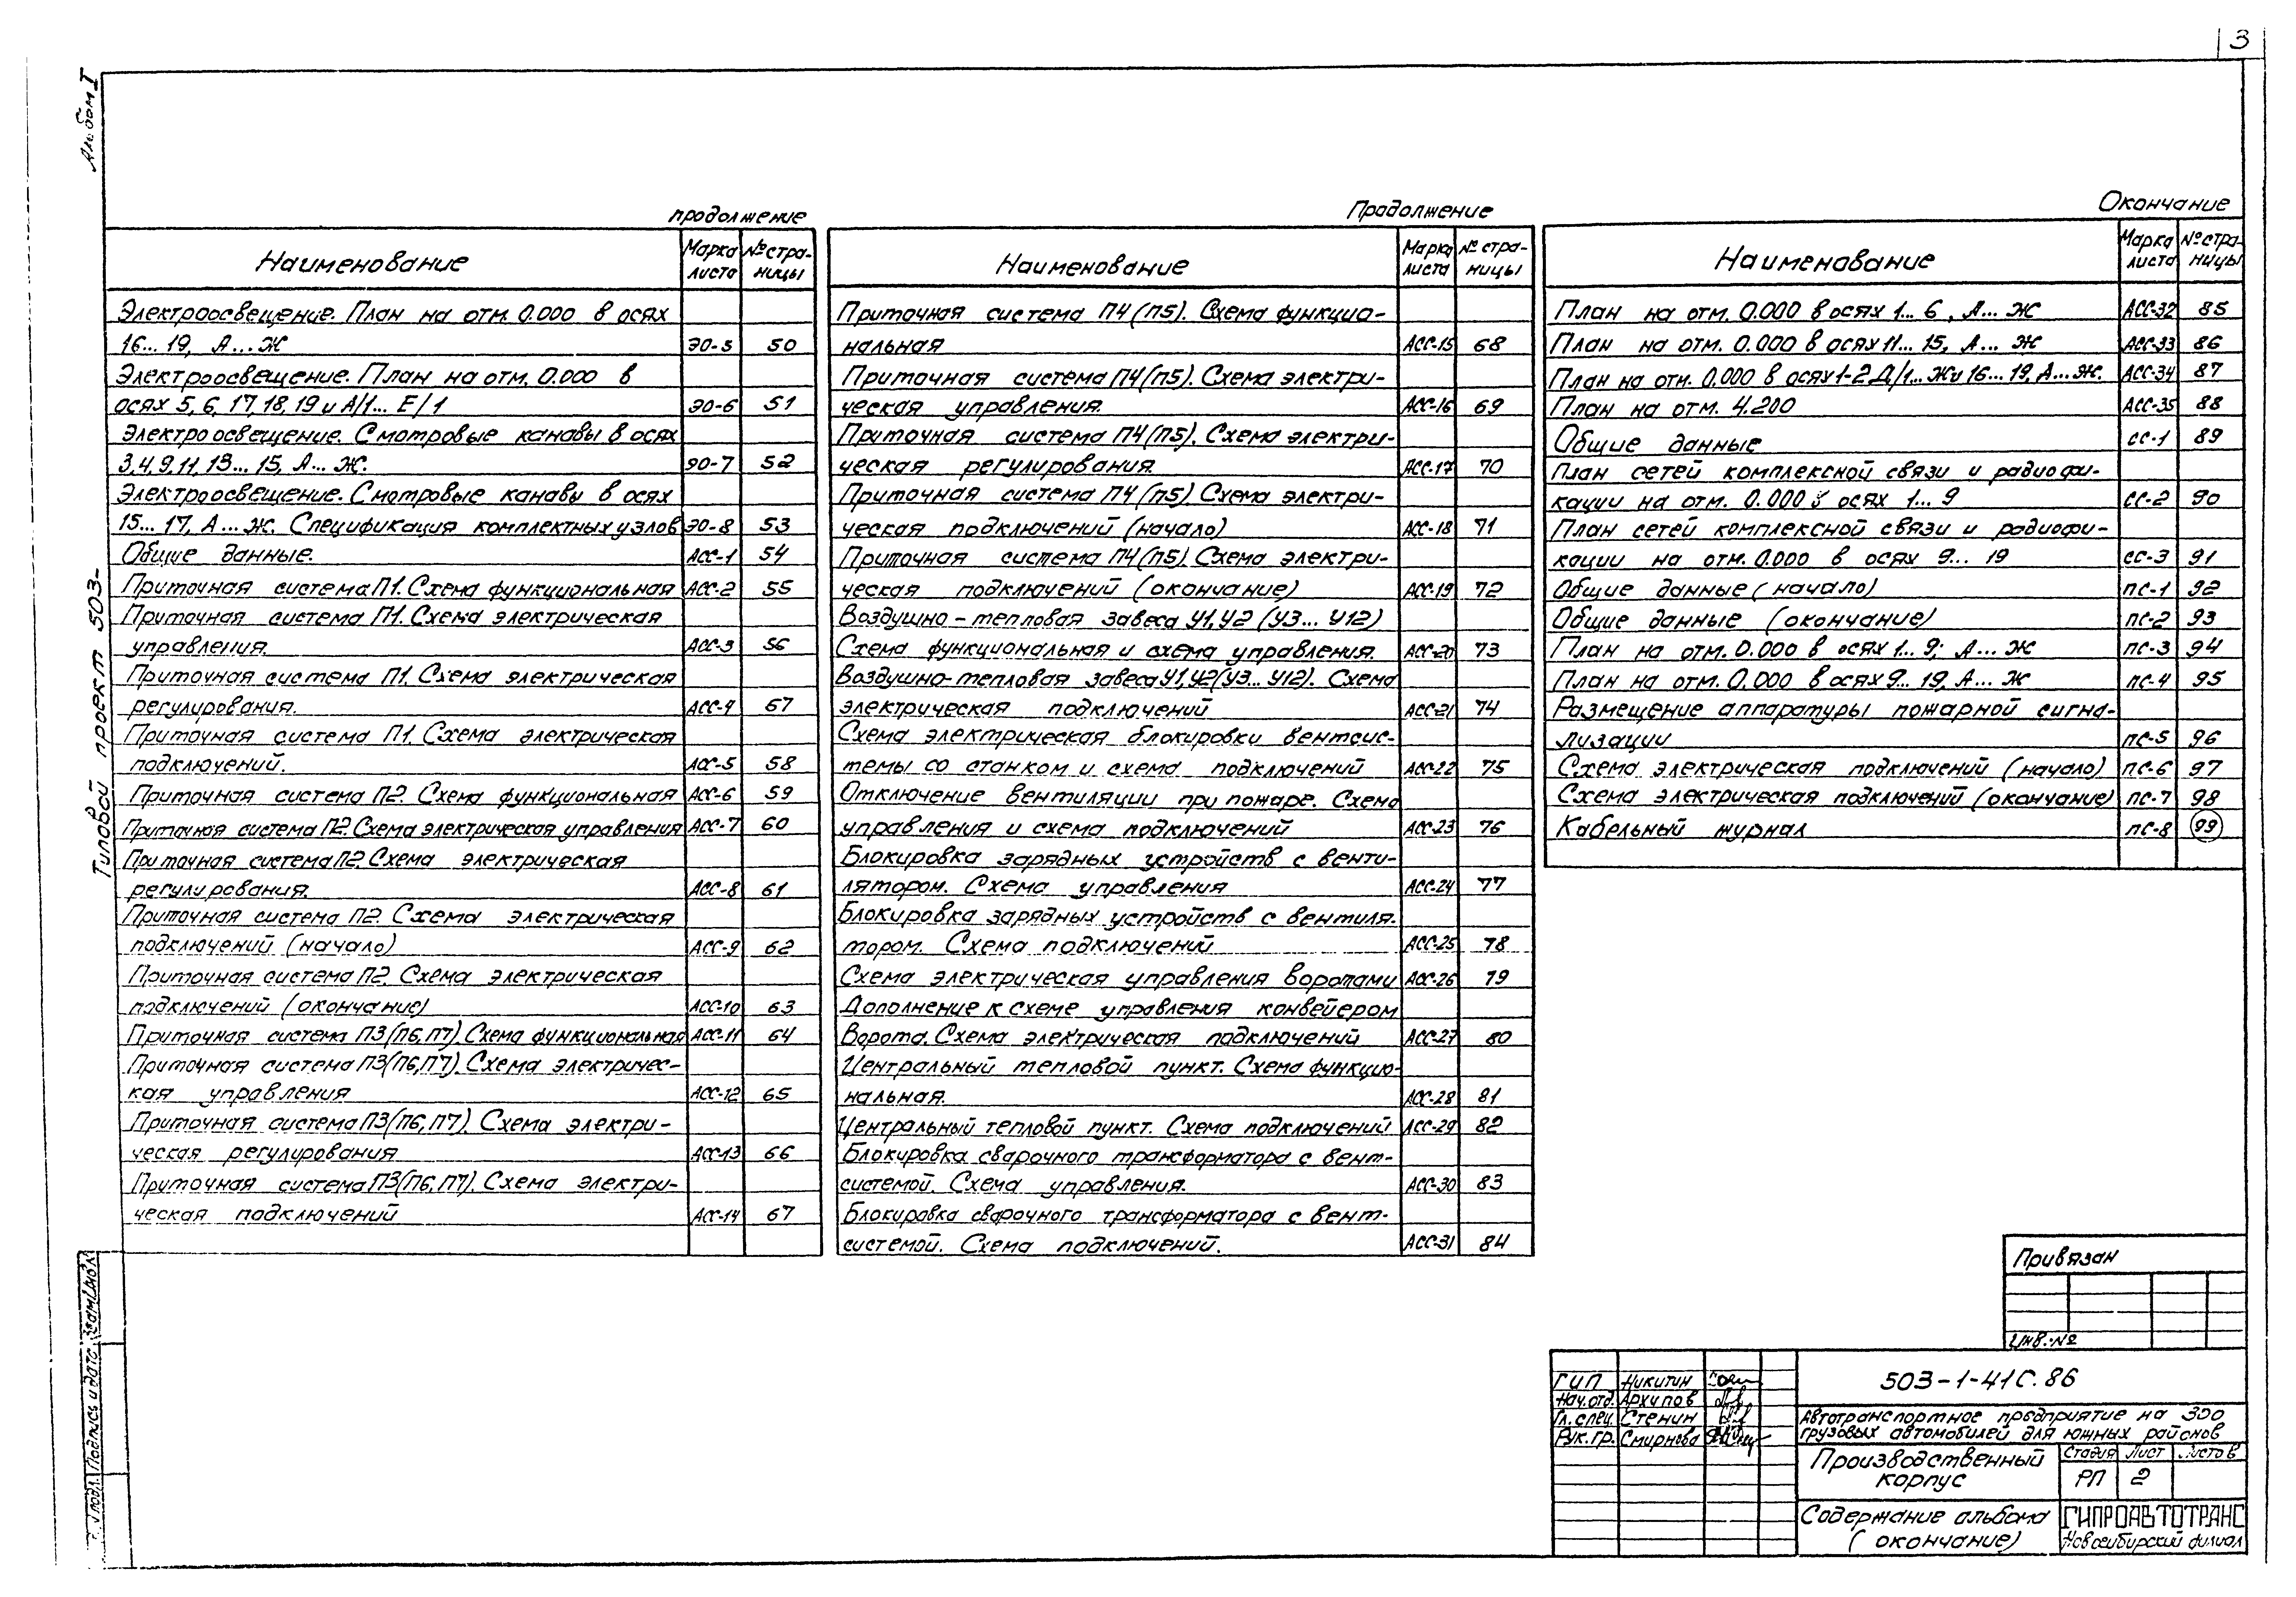 3
Альбом I
Типовой проект 503-
продолжение
Наименование Марка листа № стра-ницы
Электроосвещение. План на отм. 0.000 в осях
16... 19, А... Ж ЭО-5 50
Электроосвещение. План на отм. 0.000 в
осях 5, 6, 17, 18, 19 и А/1... Е/1 ЭО-6 51
Электроосвещение. Смотровые канавы в осях
3,4,9,11,13... 15, А... Ж. ЭО-7 52
Электроосвещение. Смотровые канавы в осях
15... 17, А... Ж. Спецификация комплектных узлов ЭО-8 53
Общие данные. АСС-1 54
Приточная система П1. Схема функциональная АСС-2 55
Приточная система П1. Схема электрическая
управления. АСС-3 56
Приточная система П1. Схема электрическая
регулирования. АСС-4 67
Приточная система П1. Схема электрическая
подключений. АСС-5 58
Приточная система П2. Схема функциональная АСС-6 59
Приточная система П2. Схема электрическая управления АСС-7 60
Приточная система П2. Схема электрическая
регулирования. АСС-8 61
Приточная система П2. Схема электрическая
подключений (начало) АСС-9 62
Приточная система П2. Схема электрическая
подключений (окончание) АСС-10 63
Приточная система П3(П6,П7). Схема функциональная АСС-11 64
Приточная система П3(П6,П7). Схема электричес-
кая управления АСС-12 65
Приточная система П3(П6,П7). Схема электри-
ческая регулирования АСС-13 66
Приточная система П3(П6,П7). Схема электри-
ческая подключений АСС-14 67
Продолжение
Наименование Марка листа № стра-ницы
Приточная система П4(П5). Схема функцио-
нальная АСС-15 68
Приточная система П4(П5). Схема электри-
ческая управления. АСС-16 69
Приточная система П4(П5). Схема электри-
ческая регулирования. АСС-17 70
Приточная система П4(П5). Схема электри-
ческая подключений (начало) АСС-18 71
Приточная система П4(П5). Схема электри-
ческая подключений (окончание) АСС-19 72
Воздушно-тепловая завеса У1,У2 (У3... У12)
Схема функциональная и схема управления. АСС-20 73
Воздушно-тепловая завеса У1,У2(У3... У12). Схема
электрическая подключений АСС-21 74
Схема электрическая блокировки вентсис-
темы со станком и схема подключений АСС-22 75
Отключение вентиляции при пожаре. Схема
управления и схема подключений АСС-23 76
Блокировка зарядных устройств с венти-
лятором. Схема управления АСС-24 77
Блокировка зарядных устройств с вентиля-
тором. Схема подключений АСС-25 78
Схема электрическая управления воротами АСС-26 79
Дополнение к схеме управления конвейером
Ворота. Схема электрическая подключений АСС-27 80
Центральный тепловой пункт. Схема функцио-
нальная. АСС-28 81
Центральный тепловой пункт. Схема подключений АСС-29 82
Блокировка сварочного трансформатора с вент-
системой. Схема управления. АСС-30 83
Блокировка сварочного трансформатора с вент-
системой. Схема подключений. АСС-31 84
Окончание
Наименование Марка листа № стра-ницы
План на отм. 0.000 в осях 1... 6, А... Ж АСС-32 85
План на отм. 0.000 в осях 11... 15, А... Ж АСС-33 86
План на отм. 0.000 в осях 1-2 Д/1... Ж и 16... 19, А... Ж. АСС-34 87
План на отм. 4.200 АСС-35 88
Общие данные СС-1 89
План сетей комплексной связи и радиофи-
кации на отм. 0.000 в осях 1... 9 СС-2 90
План сетей комплексной связи и радиофи-
кации на отм. 0.000 в осях 9... 19 СС-3 91
Общие данные (начало) ПС-1 92
Общие данные (окончание) ПС-2 93
План на отм. 0.000 в осях 1... 9; А... Ж ПС-3 94
План на отм. 0.000 в осях 9... 19, А... Ж ПС-4 95
Размещение аппаратуры пожарной сигна-
лизации ПС-5 96
Схема электрическая подключений (начало) ПС-6 97
Схема электрическая подключений (окончание) ПС-7 98
Кабельный журнал ПС-8 99
Привязан
Инв. №
ГИП Никитин
Нач. отд. Архипов
Гл. спец. Стенин
Рук. гр. Смирнова
503-1-41С.86
Автотранспортное предприятие на 300
грузовых автомобилей для южных районов
Производственный
корпус
Стадия Лист Листов
РП 2
Содержание альбома
(окончание)
ГИПРОАВТОТРАНС
Новосибирский филиал
подл. Подпись и дата Взам. инв.